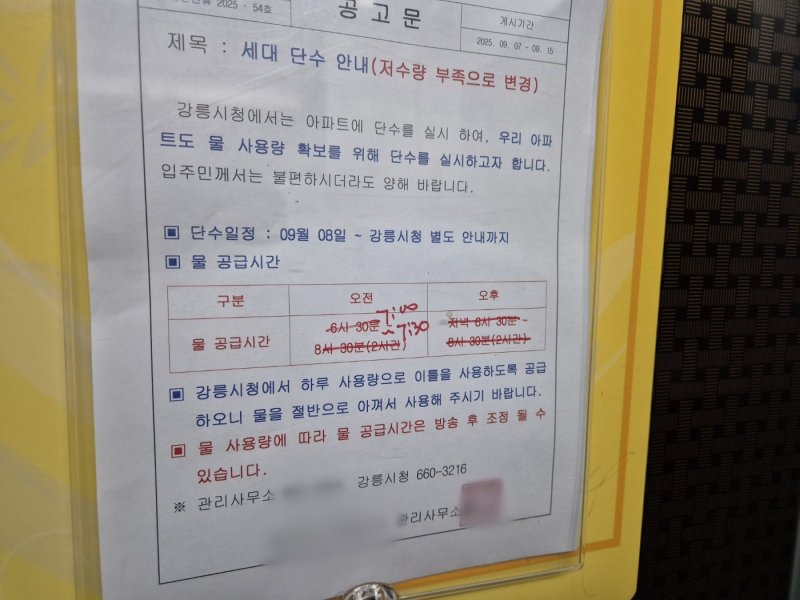 2025 - 54호
공고문
게시기간
2025. 09. 07 - 09. 15
제목 : 세대 단수 안내(저수량 부족으로 변경)
강릉시청에서는 아파트에 단수를 실시 하여, 우리 아파
트도 물 사용량 확보를 위해 단수를 실시하고자 합니다.
입주민께서는 불편하시더라도 양해 바랍니다.
▣ 단수일정 : 09월 08일 ~ 강릉시청 별도 안내까지
▣ 물 공급시간
구분 오전 오후
7:00
6시 30분 ~ 7:30 저녁 6시 30분 ~
물 공급시간
8시 30분(2시간) 8시 30분(2시간)
▣ 강릉시청에서 하루 사용량으로 이틀을 사용하도록 공급
하오니 물을 절반으로 아껴서 사용해 주시기 바랍니다.
▣ 물 사용량에 따라 물 공급시간은 방송 후 조정 될 수
있습니다.
※ 관리사무소 강릉시청 660-3216
관리사무소